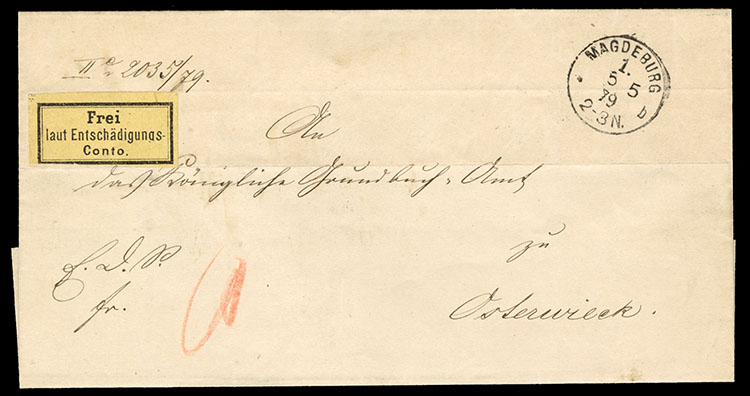 II c 2035/79.
Frei
laut Entschädigungs-
Conto.
MAGDEBURG
1.
5 5
79
2-3N.
b
An
das Königliche Grundbuch-Amt
zu
Osterwieck.
E. D. S.
fr.